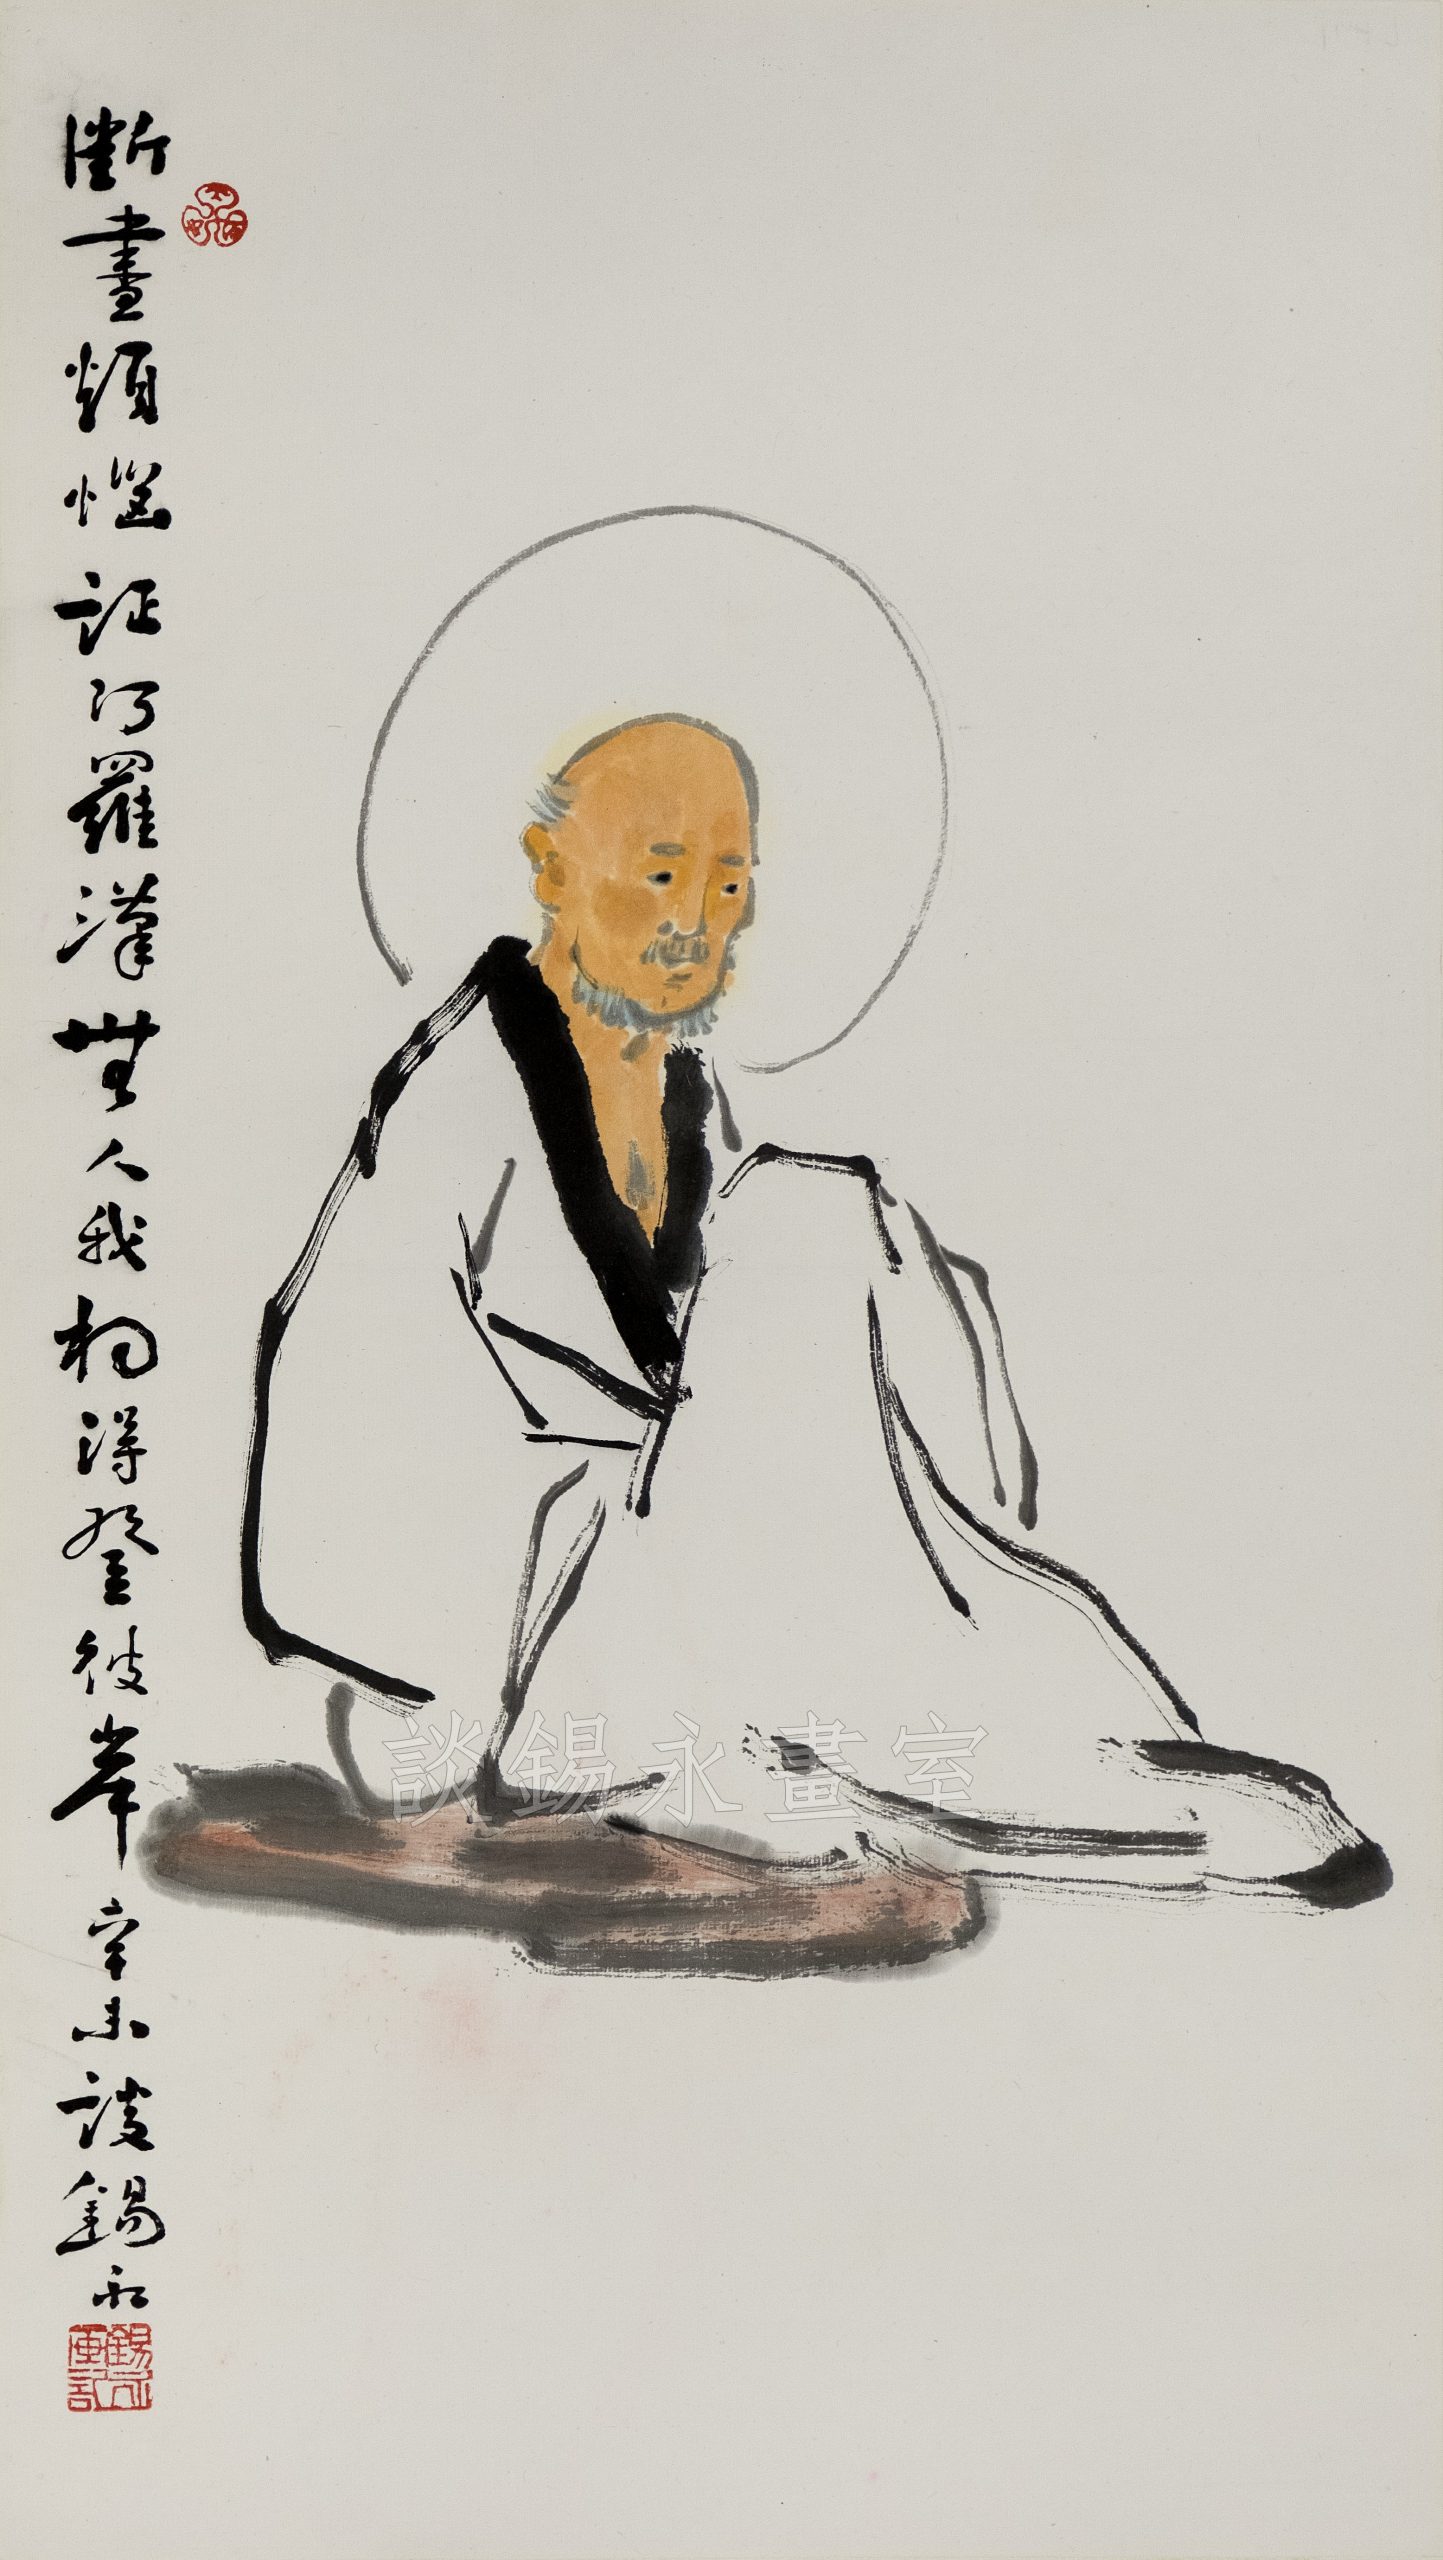 斷盡煩惱証阿羅漢無人我相得登彼岸 辛未談錫永
談錫永畫室